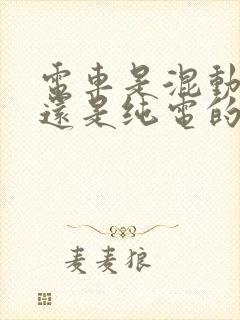 電車是混動
還是纯電的
麦麦狼